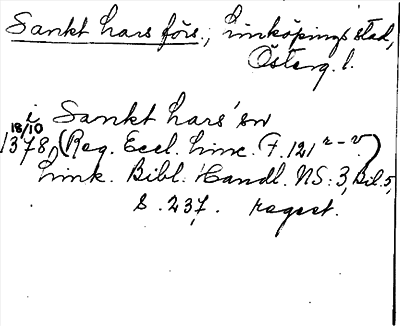 Sankt Lars förs., Linköpings stad,
Österg. l.
i Sankt Lars' sn
18/10
1378, (Reg. Eccl. Linc. F. 121 r-v.)
Link. Bibl. Handl. NS: 3, Bil. 5,
S. 237. regest.